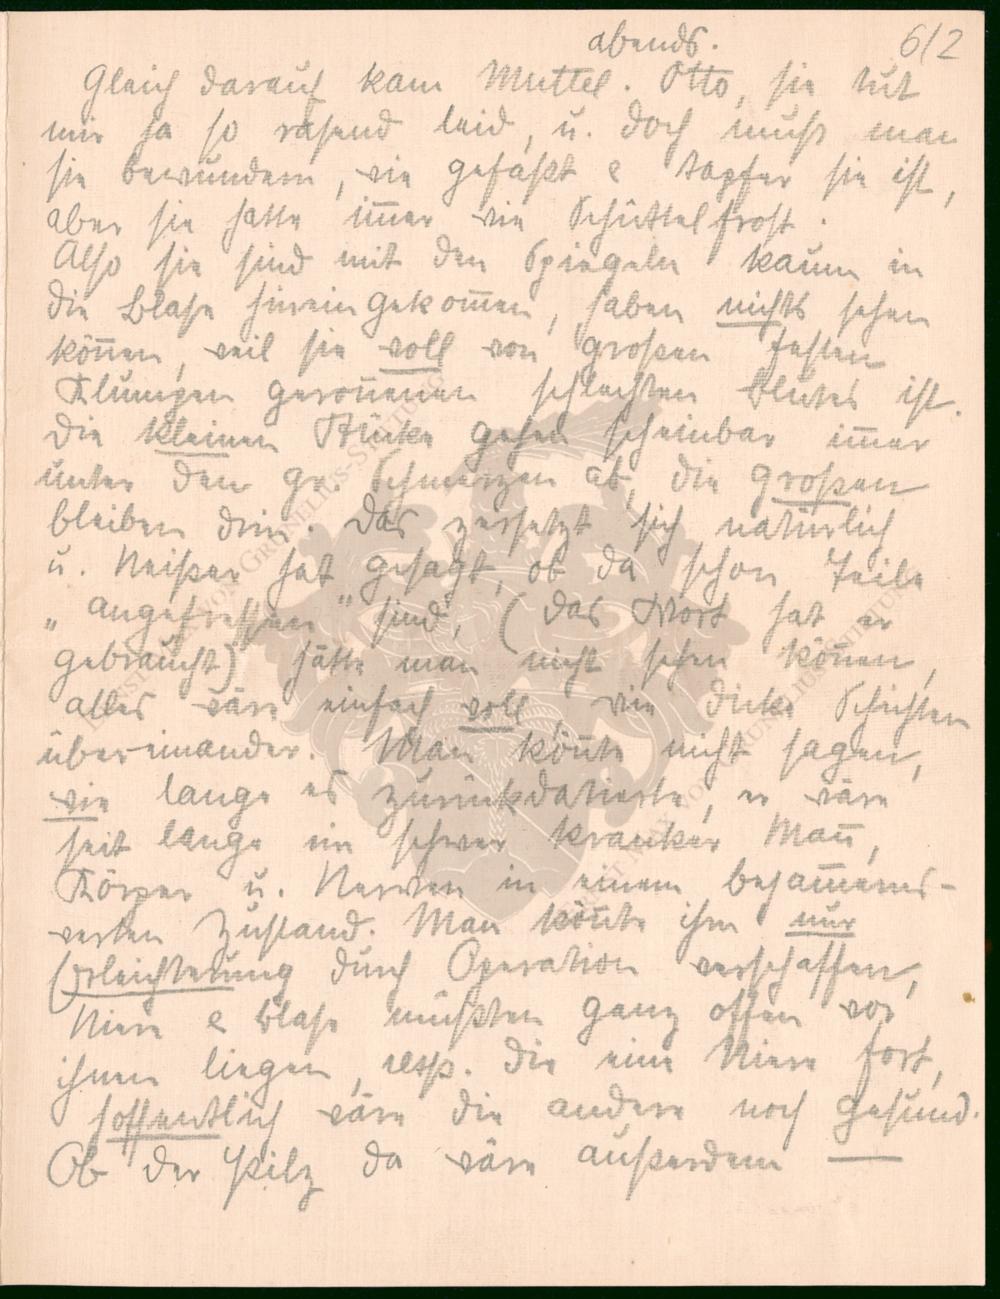 abends. 6/2
Gleich darauf kam Muttel. Otto, sie tut
mir ja so rasend leid, u. doch muß man
sie bewundern, wie gefaßt & tapfer sie ist,
aber sie hatte im̅er wie Schüttelfrost.
Also sie sind mit den Spiegeln kaum in
die Blase hineingekom̅en, haben nichts sehen
kön̅en, weil sie voll von großen festen
Klumpen geron̅enen schlechten Blutes ist.
Die kleinen Stücke gehen scheinbar im̅er
unter den gr. Schmerzen ab, die großen
bleiben drin. Das zersetzt sich natürlich
u. Neißer hat gesagt, ob da schon Teile
„angefressen" sind, (das Wort hat er
gebraucht) hätte man nicht sehen kön̅en,
alles wäre einfach voll wie dicke Schichten
übereinander. Man kön̅te nicht sagen,
wie lange es zurückdatierte, er wäre
seit lange ein schwer kranker Man̅,
Körper u. Nerven in einem bejam̅erns-
werten Zustand. Man kön̅te ihm nur
Erleichterung durch Operation verschaffen,
Niere & Blase müßten ganz offen vor
ihnen liegen, resp. die eine Niere fort,
hoffentlich wäre die andere noch gesund.
Ob der Pilz da wäre außerdem —
ERNST MAX VON GRUNELIUS-STIFTUNG